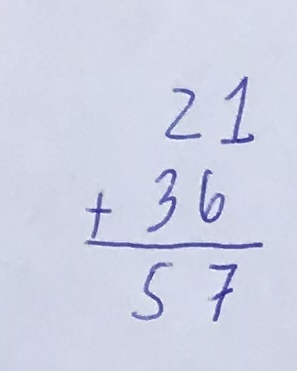 21
+ 36
57